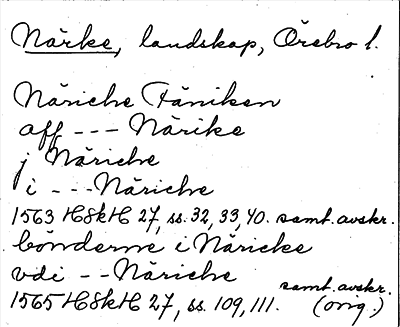 Närke, landskap, Örebro l.
Näriche Fäniken
aff --- Närike
j Näriche
i --- Näriche
1563 HSkH 27, ss. 32, 33, 40. samt. avskr.
bönderne i Näricke
vdi -- Näriche
samt. avskr.
1565 HSkH 27, ss. 109, 111. (orig.)